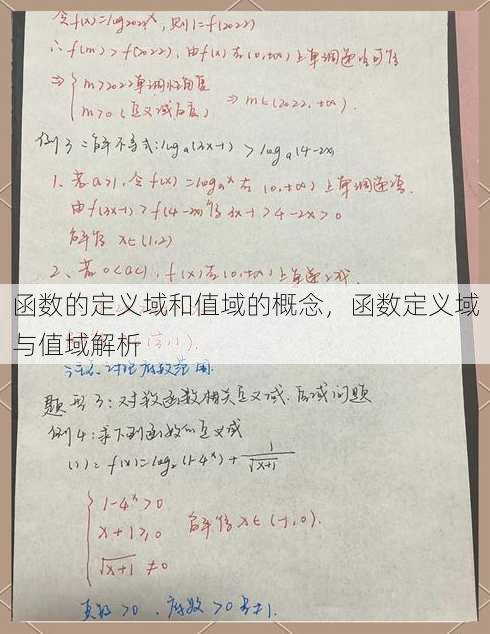 令f(x)=log₂₀₂₂ˣ,则1=f(2022)
∴f(m)>f(2022),由f(x)在(0,+∞)上单调递增可得
⇒{m>2022 单调性角度
m>0(定义域角度) ⇒m∈(2022,+∞).
例3:解不等式:logₐ(3x-1)>logₐ(4-2x)
1、若a>1,令f(x)=logₐˣ在(0,+∞)上单调递增.
由f(3x-1)>f(4-2x)得3x-1>4-2x>0
解得x∈(1,2)
2、若0<a<1,f(x)在(0,+∞)上单递减
函数的定义域和值域的概念，函数定义域
与值域解析
注意对底数范围
题型3:对数函数相关定义域、值域问题
例4:求下列函数的定义域
(1):f(x)=log₂(1-4ˣ)+1/√(x+1)
{1-4ˣ>0
x+1≥0 解得x∈(-1,0).
√(x+1)≠0
真数>0,底数>0且≠1.